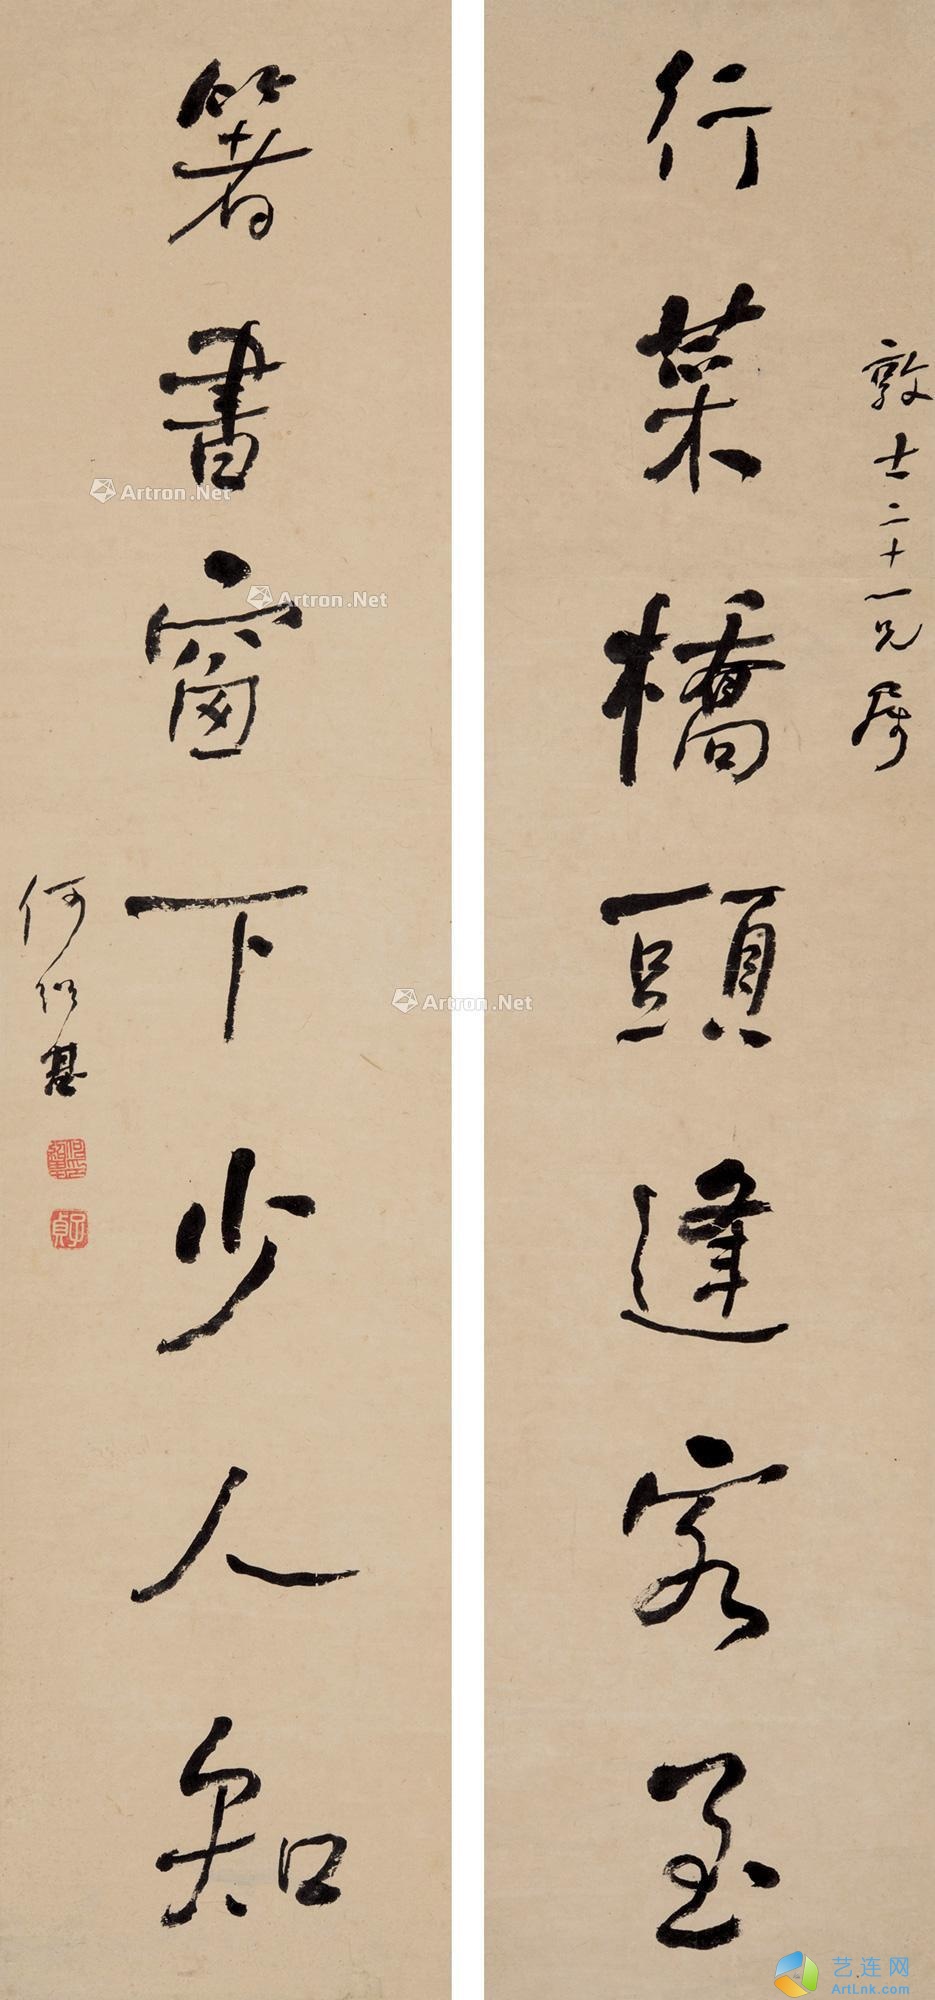 敦士二十一兄屬
行菜橋頭逢客至
箸書窗下少人知
何紹基
子貞
Artron.Net
Artron.Net
Artron.Net
艺连网
ArtLnk.com